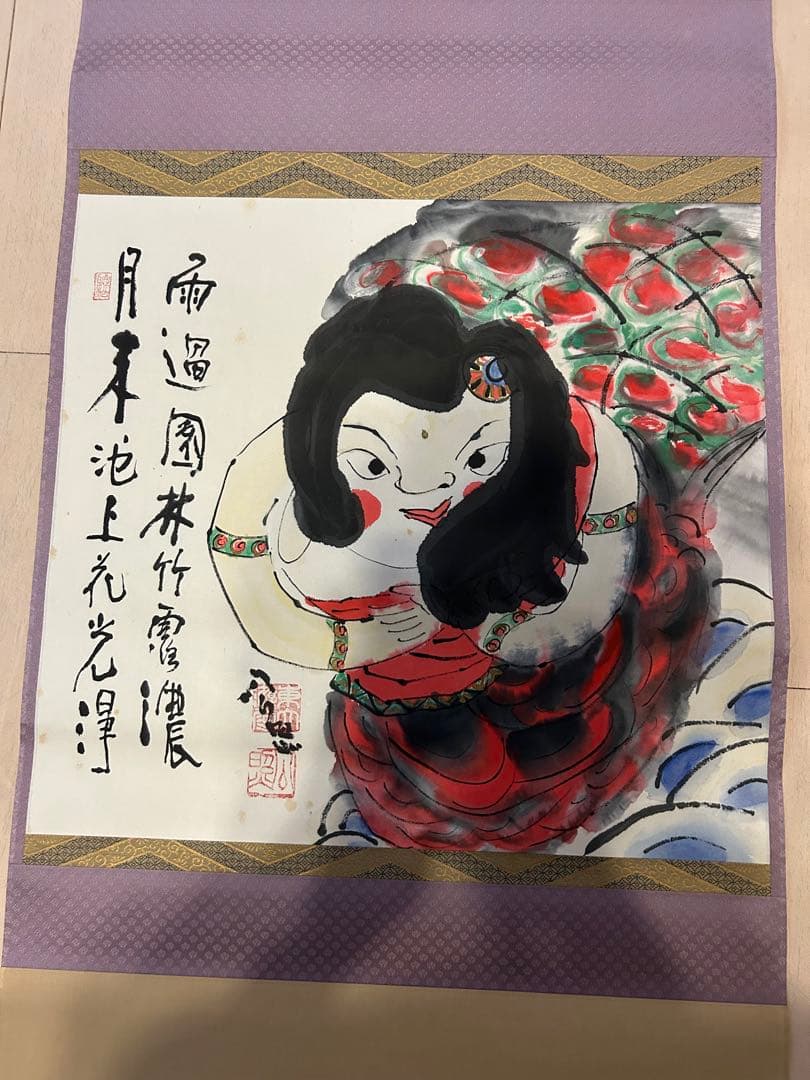 雨過園林竹露濃
月来池上花光淨